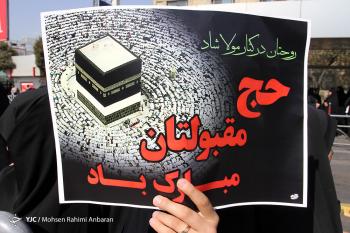 روحتان در کنار مولا شاد
حج
مقبولتان
مبارک باد
YJC / Mohsen Rahimi Anbaran